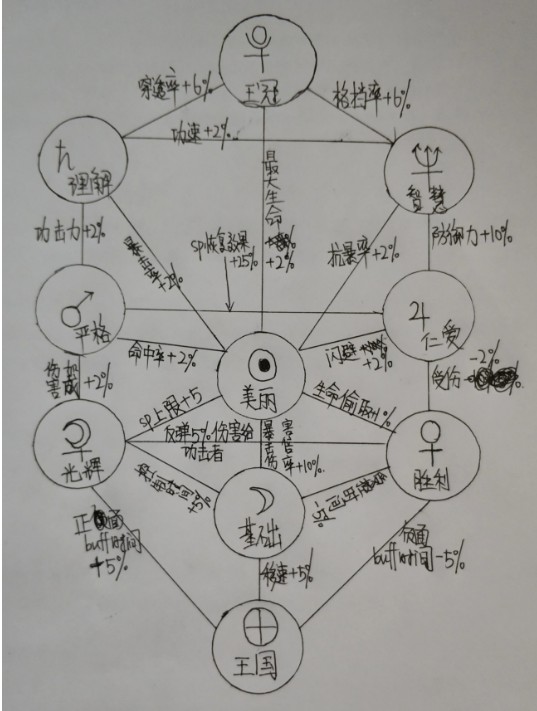 王冠
穿透率+6%
格挡率+6%
攻速+2%
理解
智慧
最大生命
+2%
攻击力+2%
暴击率+2%
sp恢复效果
+25%
抗暴率+2%
防御力+10%
严格
仁爱
命中率+2%
闪避
+2%
美丽
伤害加成+2%
受伤-2%
sp上限+5
生命偷取1%
反弹5%伤害给
攻击者
暴击伤害倍率+10%
光辉
胜利
+5%
基础
正面
buff时间
+5%
负面
buff时间-5%
移速+5%
王国